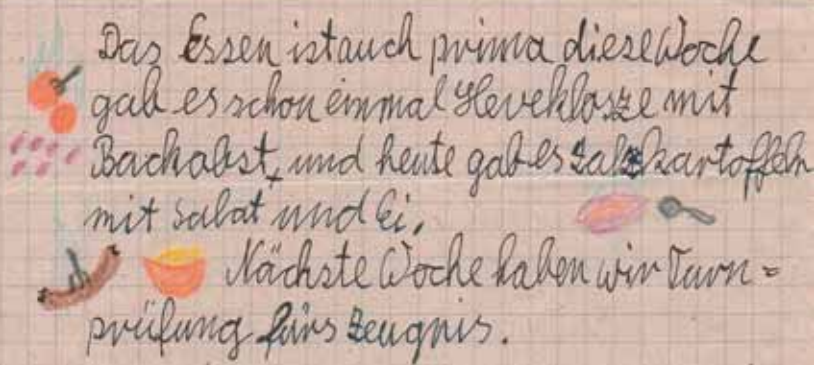 Das Essen ist auch prima diese Woche
gab es schon einmal Heveklosze mit
Backobst, und heute gab es Salzkartoffeln
mit Salat und Ei.
Nächste Woche haben wir Turn=
prüfung fürs Zeugnis.